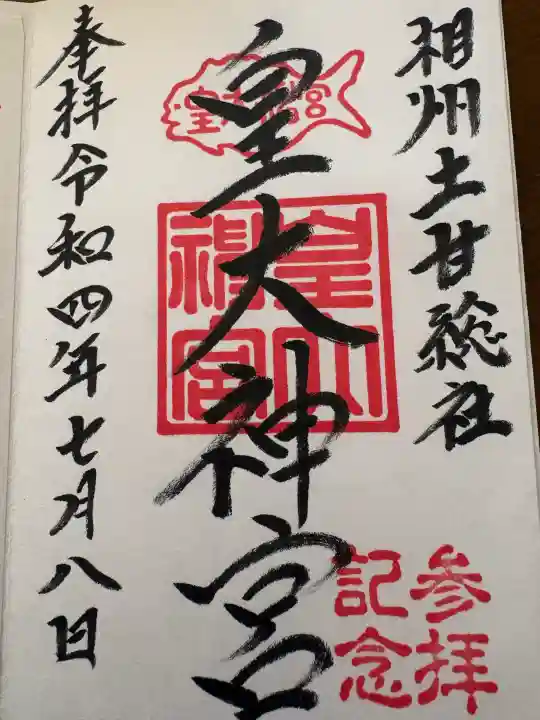 相州土甘総社
皇大神宮
奉拝令和四年七月八日
皇大神宮
参拝
記念